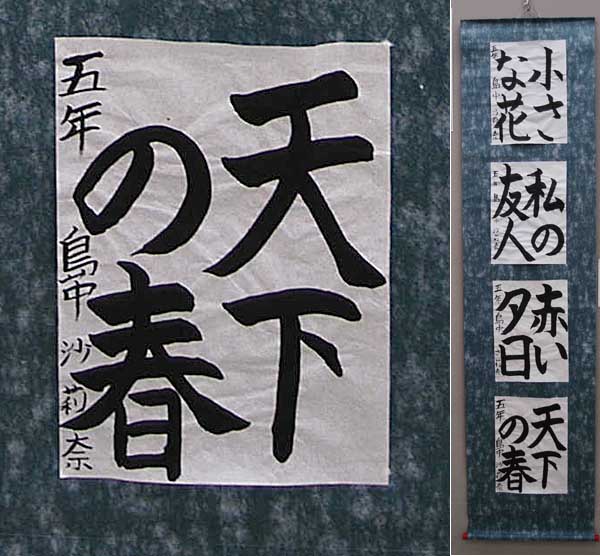 天下
の春
五年 島中 沙莉奈
小さ
な花
私の
友人
赤い
夕日
天下
の春